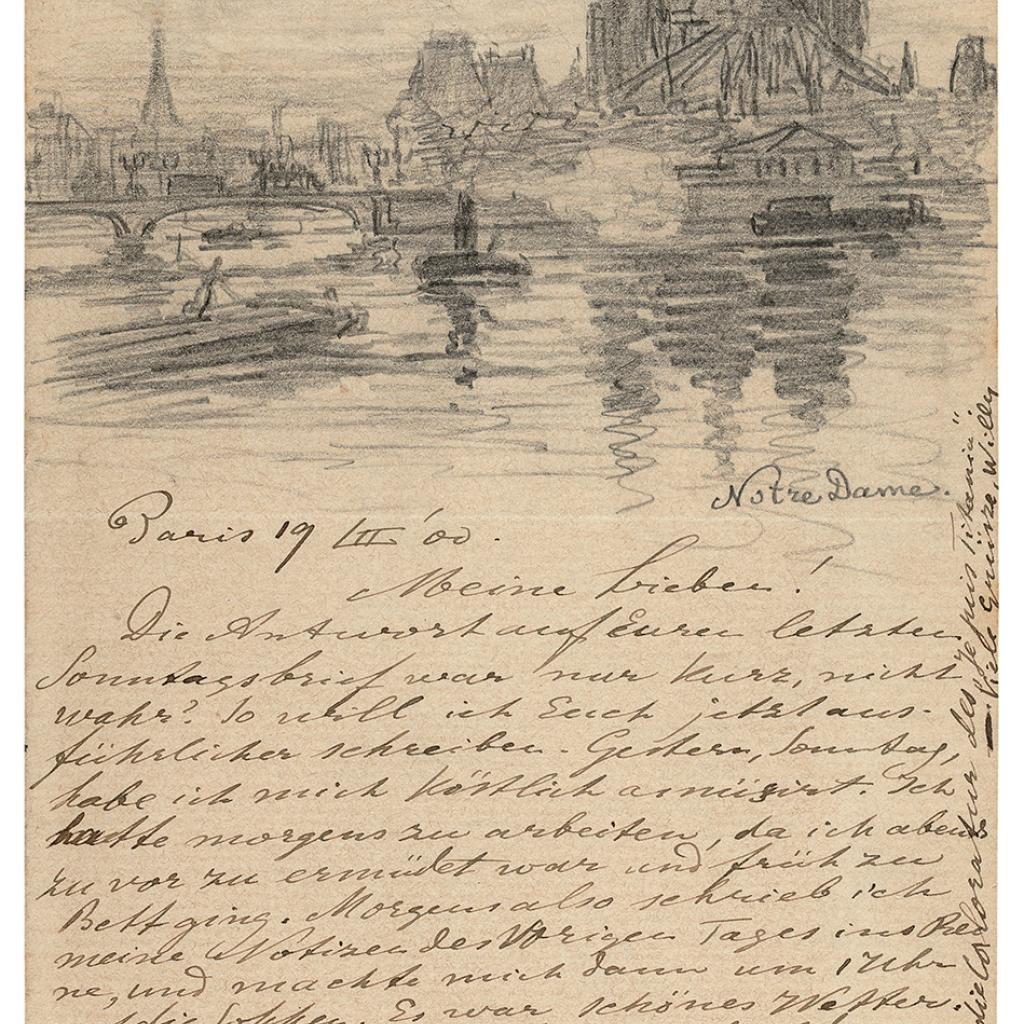 Notre Dame.
Paris 19 III '00.
Meine Lieben!
Die Antwort auf Euren letzten
Sonntagsbrief war nur kurz, nicht
wahr? So will ich Euch jetzt aus-
führlicher schreiben. Gestern, Sonntag,
habe ich mich köstlich amüsirt. Ich
hatte morgens zu arbeiten, da ich abends
zu vor zu ermüdet war und früh zu
Bett ging. Morgens also schrieb ich
meine Notizen des Vorigen Tages ins Rei
ne, und machte mich dann um 1 Uhr
die Socken. Es war schönes Wetter.
die Coloratur des "Je suis Titania".
Viele Grüsse, Willy